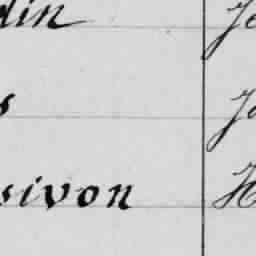 din Je
s Jo
sivon H